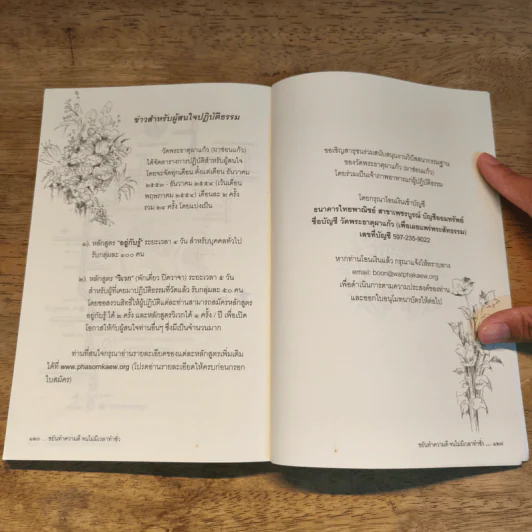 ข่าวสำหรับผู้สนใจปฏิบัติธรรม
วัดพระธาตุผาแก้ว (ผาซ่อนแก้ว)
ได้จัดตารางการปฏิบัติสำหรับผู้สนใจ
โดยจะจัดทุกเดือน ตั้งแต่เดือน ธันวาคม
๒๕๕๓ - ธันวาคม ๒๕๕๔ (เว้นเดือน
พฤษภาคม ๒๕๕๔) เดือนละ ๒ ครั้ง
รวม ๒๔ ครั้ง โดยแบ่งเป็น
๑). หลักสูตร "อยู่กับรู้" ระยะเวลา ๔ วัน สำหรับบุคคลทั่วไป
รับกลุ่มละ ๑๐๐ คน
๒). หลักสูตร "วิเวก" (พักเดี่ยว ปิดวาจา) ระยะเวลา ๕ วัน
สำหรับผู้ที่เคยมาปฏิบัติธรรมที่วัดแล้ว รับกลุ่มละ ๕๐ คน
โดยขอสงวนสิทธิ์ให้ผู้ปฏิบัติแต่ละท่านสามารถสมัครหลักสูตร
อยู่กับรู้ ได้ ๒ ครั้ง และหลักสูตรวิเวกได้ ๑ ครั้ง / ปี เพื่อเปิด
โอกาสให้กับผู้สนใจท่านอื่นๆ ซึ่งมีเป็นจำนวนมาก
ท่านที่สนใจกรุณาอ่านรายละเอียดของแต่ละหลักสูตรเพิ่มเติม
ได้ที่ www.phasornkaew.org (โปรดอ่านรายละเอียดให้ครบก่อนกรอก
ใบสมัคร)
ขยันทำความดี จนไม่มีเวลาทำชั่ว
ขอเชิญสาธุชนร่วมสนับสนุนงานวิปัสสนากรรมฐาน
ของวัดพระธาตุผาแก้ว (ผาซ่อนแก้ว)
โดยร่วมเป็นเจ้าภาพอาหารแก่ผู้ปฏิบัติธรรม
โดยกรุณาโอนเงินเข้าบัญชี
ธนาคารไทยพาณิชย์ สาขาเพชรบูรณ์ บัญชีออมทรัพย์
ชื่อบัญชี วัดพระธาตุผาแก้ว (เพื่อเผยแพร่พระสัทธรรม)
เลขที่บัญชี 597-235-9022
หากท่านโอนเงินแล้ว กรุณาแจ้งให้ทราบทาง
email: boon@watphakaew.org
เพื่อดำเนินการตามความประสงค์ของท่าน
และออกใบอนุโมทนาบัตรให้ต่อไป
ขยันทำความดี จนไม่มีเวลาทำชั่ว